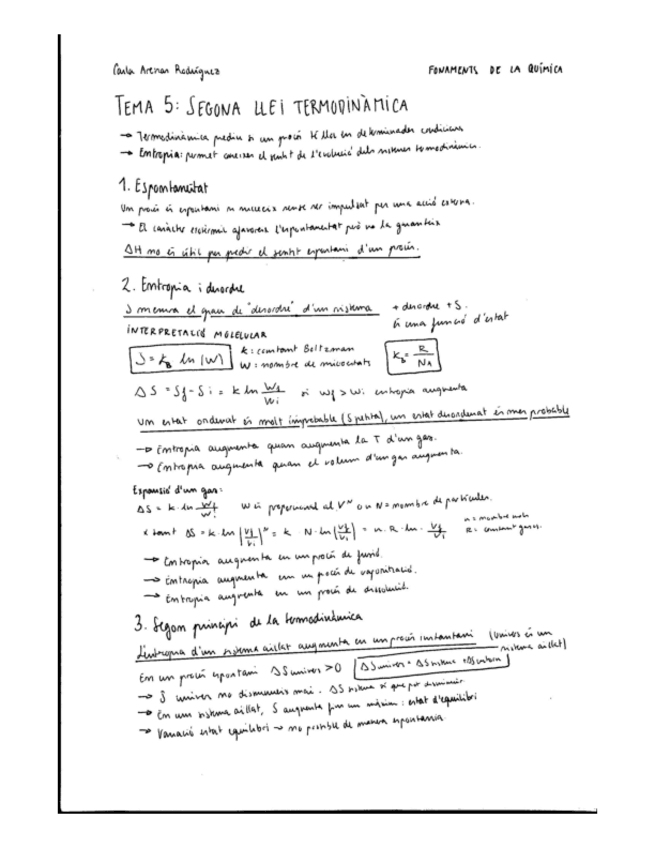 Carla Arenas Rodríguez
FONAMENTS DE LA QUÍMICA
TEMA 5: SEGONA LLEI TERMODINÀMICA
→ Termodinàmica prediu si un procés té lloc en determinades condicions
→ Entropia: permet conèixer el sentit de l'evolució dels sistemes termodinàmics.
1. Espontaneïtat
Un procés és espontani si succeeix sense ser impulsat per una acció externa.
→ El caràcter exotèrmic afavoreix l'espontaneitat però no la garanteix
ΔH no és útil per predir el sentit espontani d'un procés.
2. Entropia i desordre
S mesura el grau de "desordre" d'un sistema
+ desordre + S.
és una funció d'estat
INTERPRETACIÓ MOLECULAR
S = k_B ln (W)
k: constant Boltzman
W: nombre de microestats
k_B = R/N_A
ΔS = Sf - Si = k ln Wf/Wi si Wf > Wi entropia augmenta
Un estat ordenat és molt improbable (S petita), un estat desordenat és més probable
→ Entropia augmenta quan augmenta la T d'un gas.
→ Entropia augmenta quan el volum d'un gas augmenta.
Expansió d'un gas:
ΔS = k · ln Wf/Wi W és proporcional al V^N on N = nombre de partícules.
x tant ΔS = k · ln |Vf/Vi|^N = k N · ln |Vf/Vi| = n · R · ln · Vf/Vi
n = nombre mols
R = constant gasos.
→ Entropia augmenta en un procés de fusió.
→ Entropia augmenta en un procés de vaporització.
→ Entropia augmenta en un procés de dissolució.
3. Segon principi de la termodinàmica
L'entropia d'un sistema aïllat augmenta en un procés instantani
(univers és un
sistema aïllat)
En un procés espontani ΔS univers > 0
ΔS univers = ΔS sistema + ΔS entorn
→ S univers no disminueix mai. ΔS sistema sí que pot disminuir
→ En un sistema aïllat, S augmenta fins un màxim: estat d'equilibri
→ Variació estat equilibri → no possible de manera espontània.